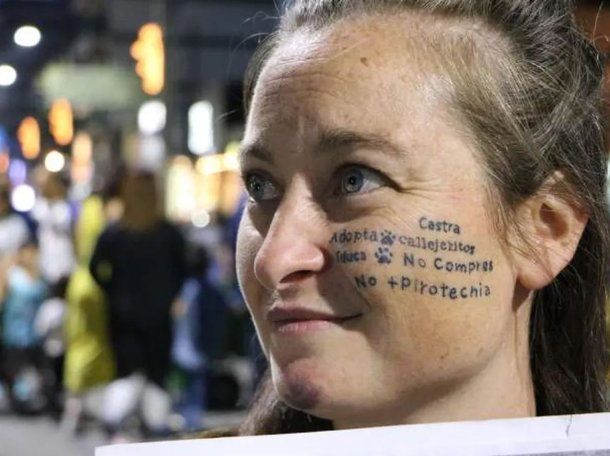 Castra
Adopta callejeritos
Educa No Compres
No +Pirotechia